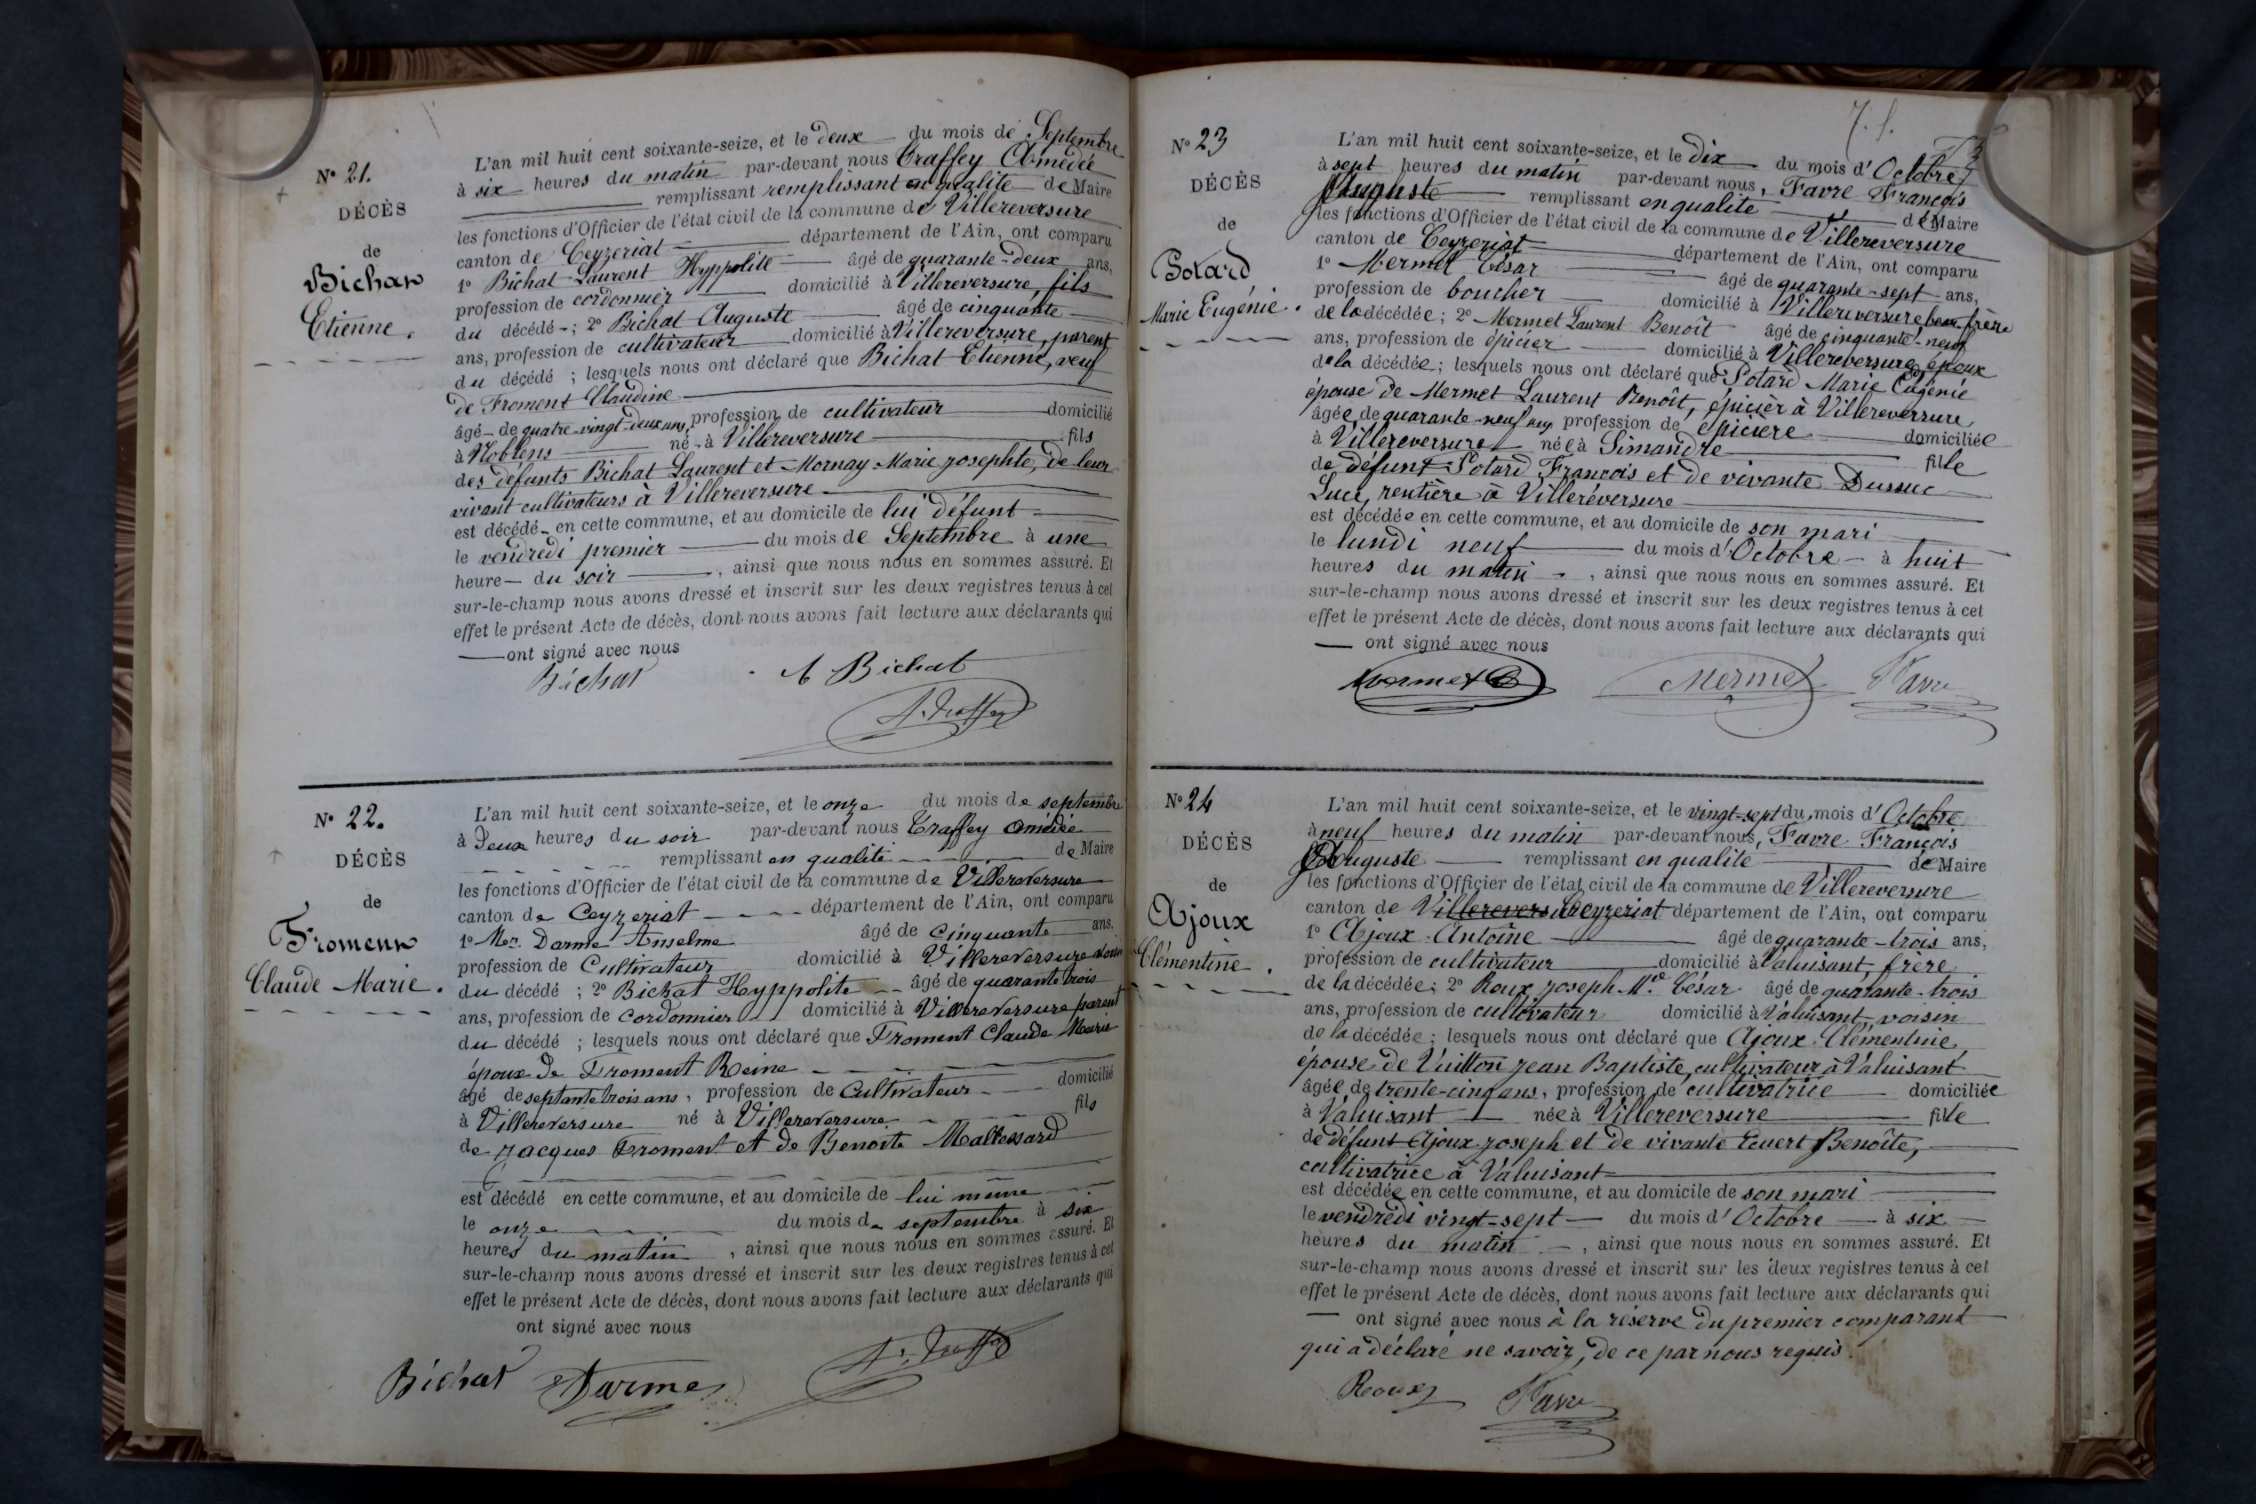 N° 21.
DÉCÈS
de
Bichat
Etienne.
L'an mil huit cent soixante-seize, et le deux du mois de Septembre
à six heures du matin par-devant nous Traffey Amédée
remplissant remplissant en qualité de Maire
les fonctions d'Officier de l'état civil de la commune de Villereversure
canton de Ceyzeriat département de l'Ain, ont comparu
1° Bichat Laurent Hyppolite âgé de quarante-deux ans,
profession de cordonnier domicilié à Villereversure, fils
du décédé ; 2° Bichat Auguste âgé de cinquante
ans, profession de cultivateur domicilié à Villereversure, parent
du décédé ; lesquels nous ont déclaré que Bichat Etienne, veuf
de Froment Claudine
âgé de quatre-vingt-deux ans, profession de cultivateur domicilié
à Noblens né à Villereversure fils
des défunts Bichat Laurent et Mornay Marie Josephte, de leur
vivant cultivateurs à Villereversure
est décédé en cette commune, et au domicile de lui défunt
le vendredi premier du mois de Septembre à une
heure du soir , ainsi que nous nous en sommes assuré. Et
sur-le-champ nous avons dressé et inscrit sur les deux registres tenus à cet
effet le présent Acte de décès, dont nous avons fait lecture aux déclarants qui
ont signé avec nous
Bichat A Bichat
A. Traffey
N° 22.
DÉCÈS
de
Froment
Claude Marie.
L'an mil huit cent soixante-seize, et le onze du mois de septembre
à Deux heures du soir par-devant nous Traffey Amédée
remplissant en qualité de Maire
les fonctions d'Officier de l'état civil de la commune de Villereversure
canton de Ceyzeriat département de l'Ain, ont comparu
1° Darme Anselme âgé de cinquante ans.
profession de Cultivateur domicilié à Villereversure
du décédé ; 2° Bichat Hyppolite âgé de quarante trois
ans, profession de cordonnier domicilié à Villereversure parent
du décédé ; lesquels nous ont déclaré que Froment Claude Marie
époux de Froment Reine
âgé de septante trois ans, profession de Cultivateur domicilié
à Villereversure né à Villereversure fils
de Jacques Froment et de Benoite Maltessard
est décédé en cette commune, et au domicile de lui même
le onze du mois de septembre à six
heures du matin , ainsi que nous nous en sommes assuré. Et
sur-le-champ nous avons dressé et inscrit sur les deux registres tenus à cet
effet le présent Acte de décès, dont nous avons fait lecture aux déclarants qui
ont signé avec nous
Bichat Darme A. Traffey
N° 23
DÉCÈS
de
Potard
Marie Eugénie.
L'an mil huit cent soixante-seize, et le dix du mois d'Octobre
à sept heures du matin par-devant nous, Favre François
Auguste remplissant en qualité de Maire
les fonctions d'Officier de l'état civil de la commune de Villereversure
canton de Ceyzeriat département de l'Ain, ont comparu
1° Mermet César âgé de quarante-sept ans,
profession de boucher domicilié à Villereversure beau-frère
de la décédée; 2° Mermet Laurent Benoît âgé de cinquante-neuf
ans, profession de épicier domicilié à Villereversure, époux
de la décédée; lesquels nous ont déclaré que Potard Marie Eugénie
épouse de Mermet Laurent Benoît, épicier à Villereversure,
âgée de quarante-neuf ans, profession de épicière domiciliée
à Villereversure née à Simandre fille
de défunt Potard François et de vivante Dussuc
Luce, rentière à Villereversure
est décédée en cette commune, et au domicile de son mari
le lundi neuf du mois d'Octobre à huit
heures du matin , ainsi que nous nous en sommes assuré. Et
sur-le-champ nous avons dressé et inscrit sur les deux registres tenus à cet
effet le présent Acte de décès, dont nous avons fait lecture aux déclarants qui
ont signé avec nous
Mermet C Mermet Favre
N° 24
DÉCÈS
de
Ajoux
Clémentine.
L'an mil huit cent soixante-seize, et le vingt-sept du mois d'Octobre
à neuf heures du matin par-devant nous, Favre François
Auguste remplissant en qualité de Maire
les fonctions d'Officier de l'état civil de la commune de Villereversure
canton de Villereversure Ceyzeriat département de l'Ain, ont comparu
1° Ajoux Antoine âgé de quarante-trois ans,
profession de cultivateur domicilié à Valuisant, frère
de la décédée; 2° Roux Joseph M.ie César âgé de quarante-trois
ans, profession de cultivateur domicilié à Valuisant, voisin
de la décédée; lesquels nous ont déclaré que Ajoux Clémentine,
épouse de Vuitton Jean Baptiste, cultivateur à Valuisant
âgée de trente-cinq ans, profession de cultivatrice domiciliée
à Valuisant née à Villereversure fille
de défunt Ajoux Joseph et de vivante Benoîte,
cultivatrice à Valuisant
est décédée en cette commune, et au domicile de son mari
le vendredi vingt-sept du mois d'Octobre à six
heures du matin , ainsi que nous nous en sommes assuré. Et
sur-le-champ nous avons dressé et inscrit sur les deux registres tenus à cet
effet le présent Acte de décès, dont nous avons fait lecture aux déclarants qui
ont signé avec nous à la réserve du premier comparant
qui a déclaré ne savoir, de ce par nous requis.
Roux Favre